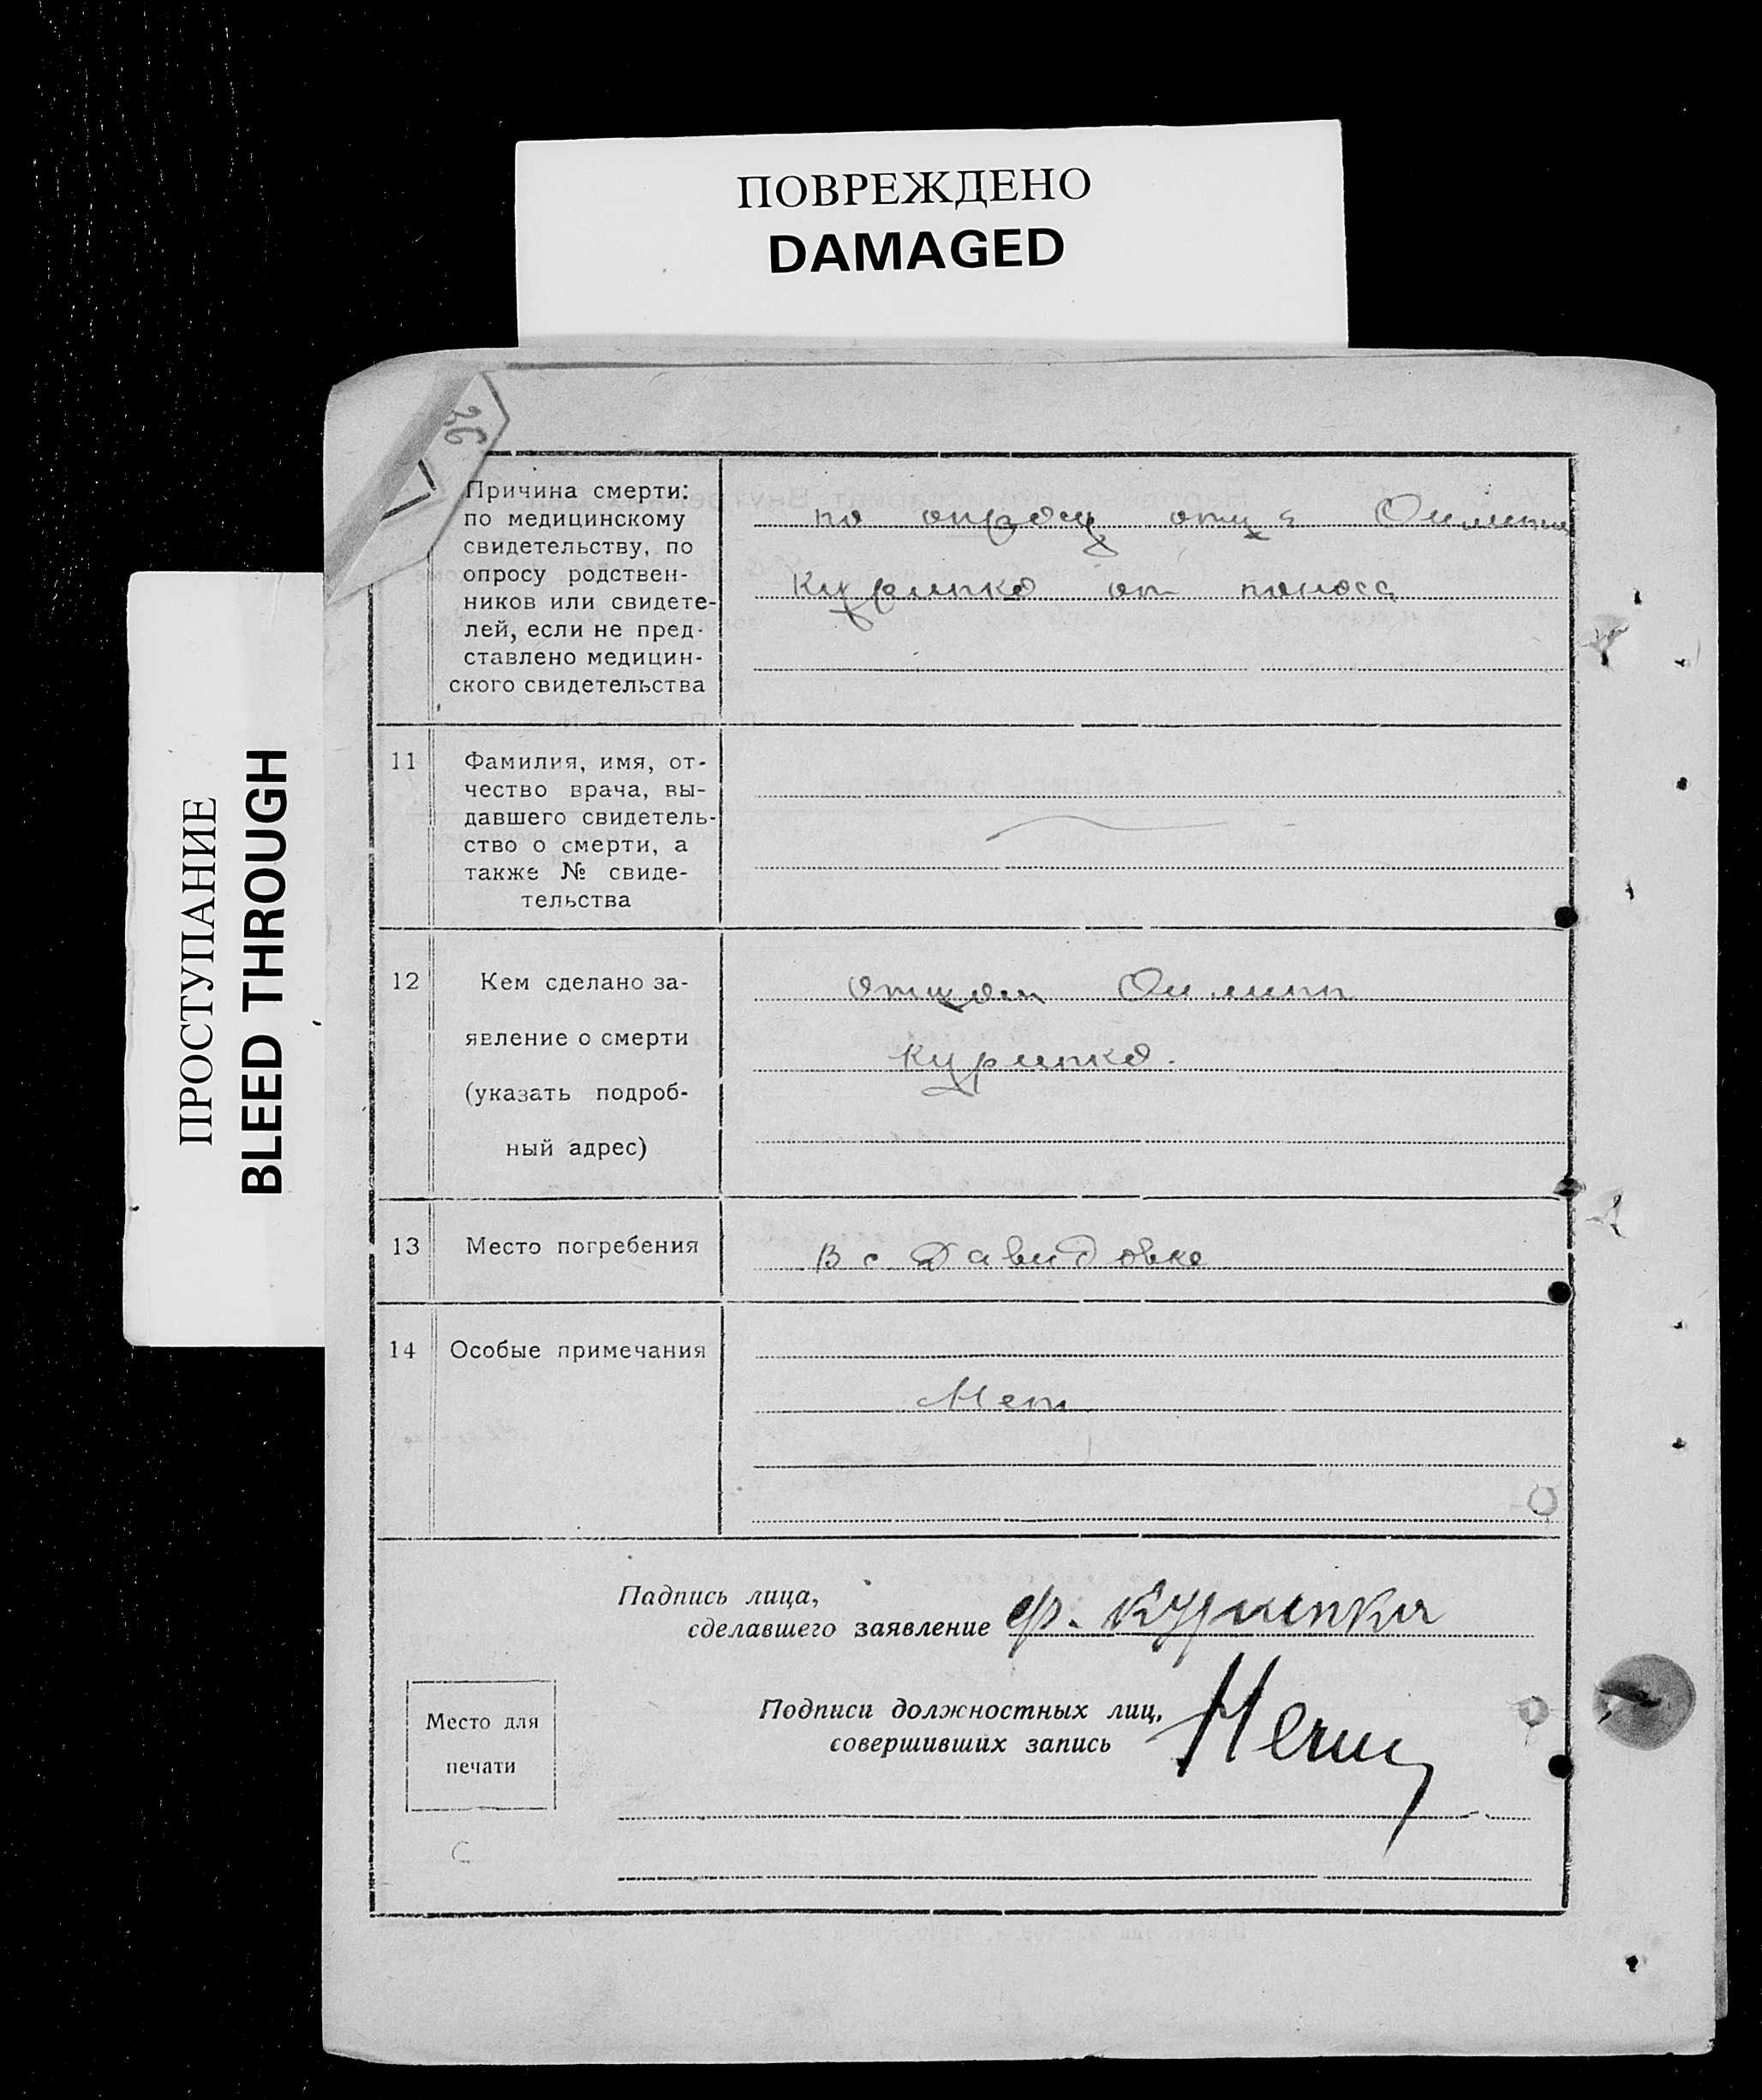 ПОВРЕЖДЕНО
DAMAGED
ПРОСТУПАНИЕ
BLEED THROUGH
Причина смерти:
по медицинскому
свидетельству, по
опросу родствен-
ников или свидете-
лей, если не пред-
ставлено медицин-
ского свидетельства
по опросу отца
Курипко от поноса
11
Фамилия, имя, от-
чество врача, вы-
давшего свидетель-
ство о смерти, а
также № свиде-
тельства
12
Кем сделано за-
явление о смерти
(указать подроб-
ный адрес)
отцом
Курипко.
13
Место погребения
В с Давидовке
14
Особые примечания
Нет
Падпись лица,
сделавшего заявление
Курипка
Подписи должностных лиц,
совершивших запись
Место для
печати